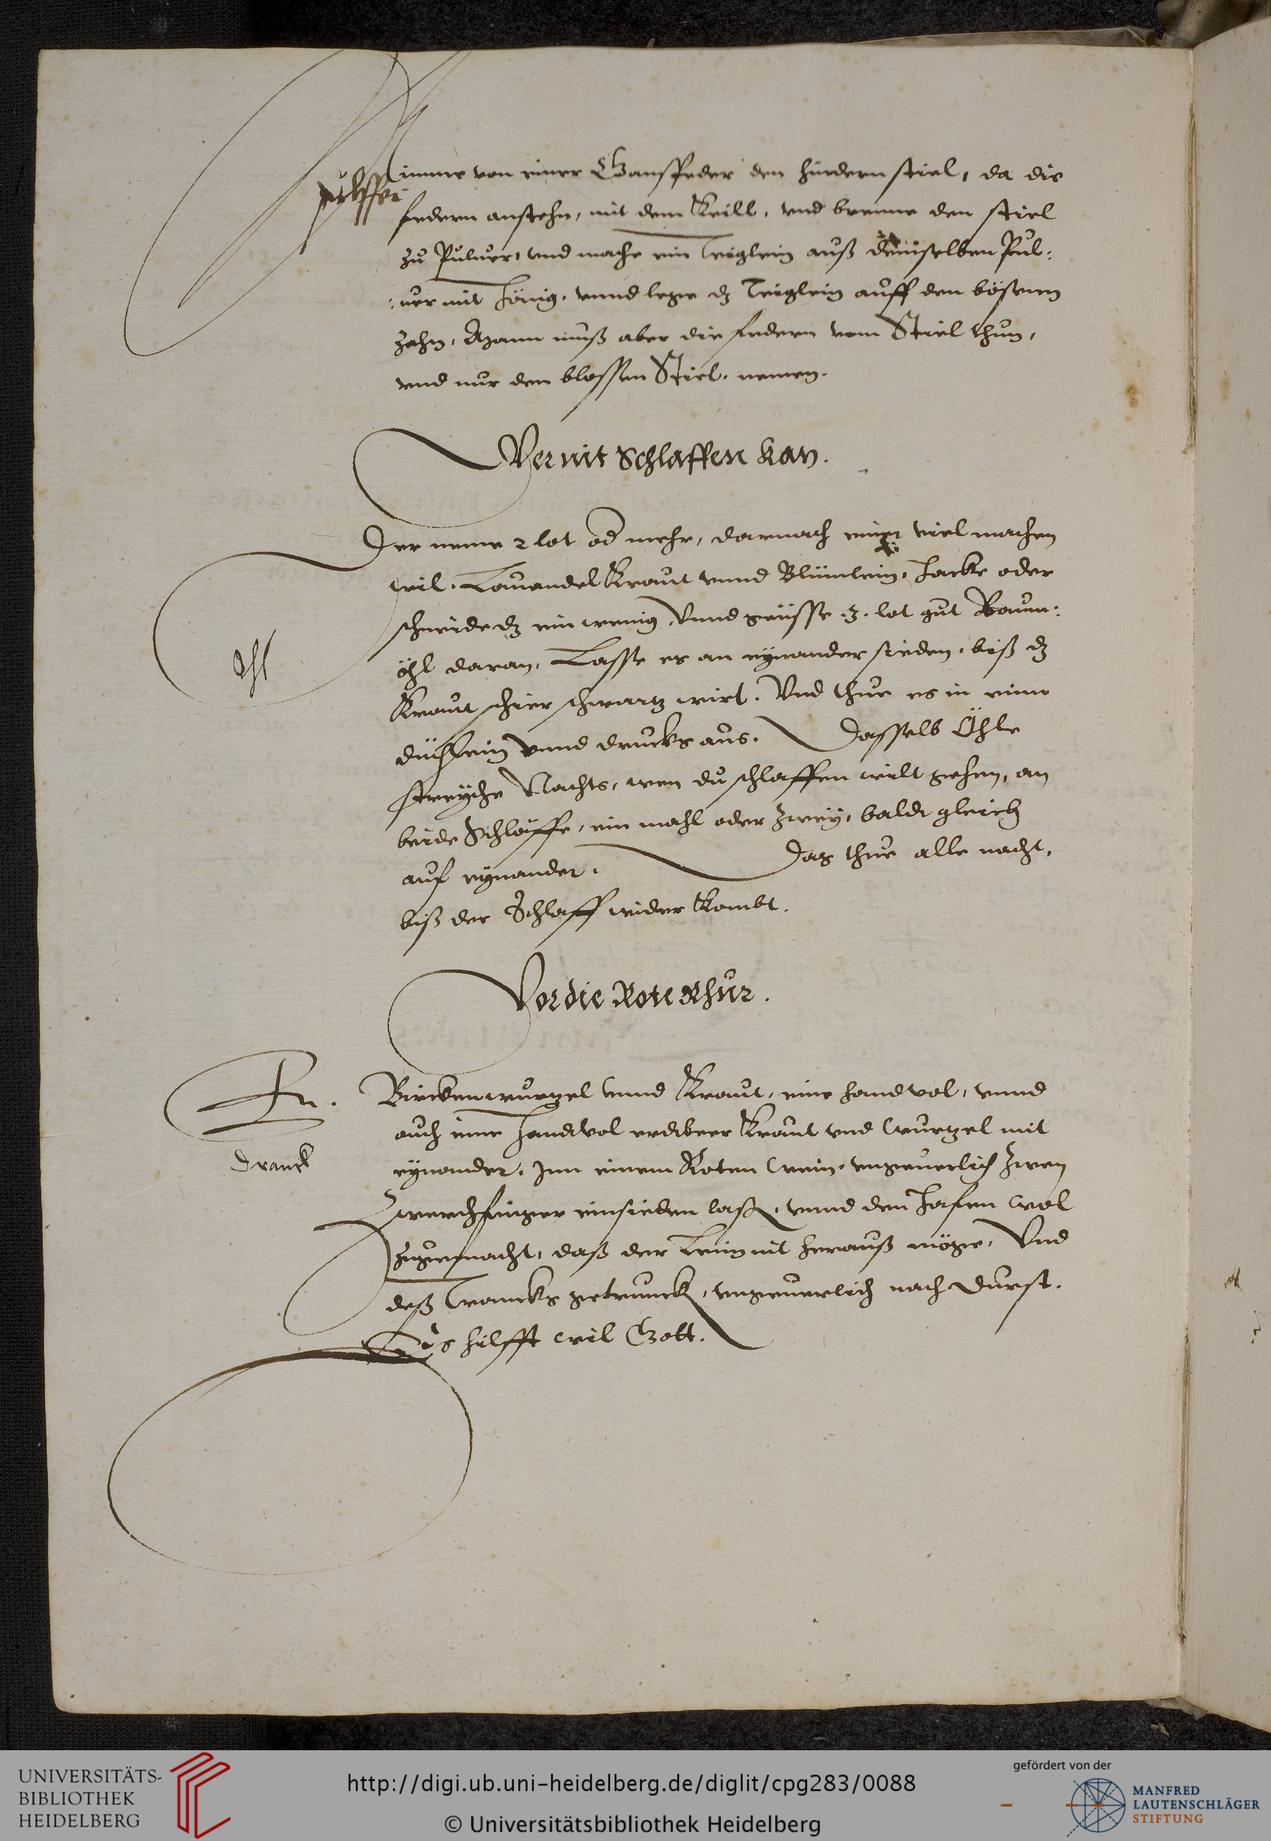 pulffer
Nimme von einer Gansfeder den hindern stiel, da die
federn anstehn, mit dem Keill, vnd brenne den stiel
zu Puluer, vnd mache ein Teiglein auß demselben Pul-
uer mit Hönig, vnnd lege dz Teiglein auff den bösenn
zahn, Mann muß aber die federn vom Stiel thun,
vnd nur den blossen Stiel nemen.
Wer nit Schlaffen kan.
Der neme 2 lot od mehr, darnach einer viel machen
wil, Lauandel Kraut vnnd Blümlein, Hacke oder
schneide dz ein wenig, Vnnd geüsse 3. lot gut Baum-
öhl daran, Lasse es an eynander sieden, biß dz
öhl
Kraut schier schwartz wirt. Vnd thue es in eine
düchlein Vnnd drucks aus. Dasselb Öhle
streyche Nachts, wen du schlaffen wilt gehen, an
beide Schläffe, ein mahl oder zwey, baldt gleich
auf eynander. Das thue alle nacht,
biß der Schlaff wider Kombt.
Vor die Rote Rhur.
En. Birckenwurtzel vnnd Kraut, eine handvol, vnnd
auch eine Handvol erdtbeer Kraut vnd Wurtzel mit
dranck
eynander, Inn einem Roten Wein, vngeuerlich Zwen
Zwerchfinger einsieden lassen, vnnd den Hafen wol
zugemacht, daß der Dein nit herauß möge, Vnd
deß Trancks getrunck, vngeuerlich nach Durst.
Es hilfft wil Gott.
UNIVERSITÄTS-
BIBLIOTHEK
HEIDELBERG
http://digi.ub.uni-heidelberg.de/diglit/cpg283/0088
© Universitätsbibliothek Heidelberg
gefördert von der
MANFRED
LAUTENSCHLÄGER
STIFTUNG